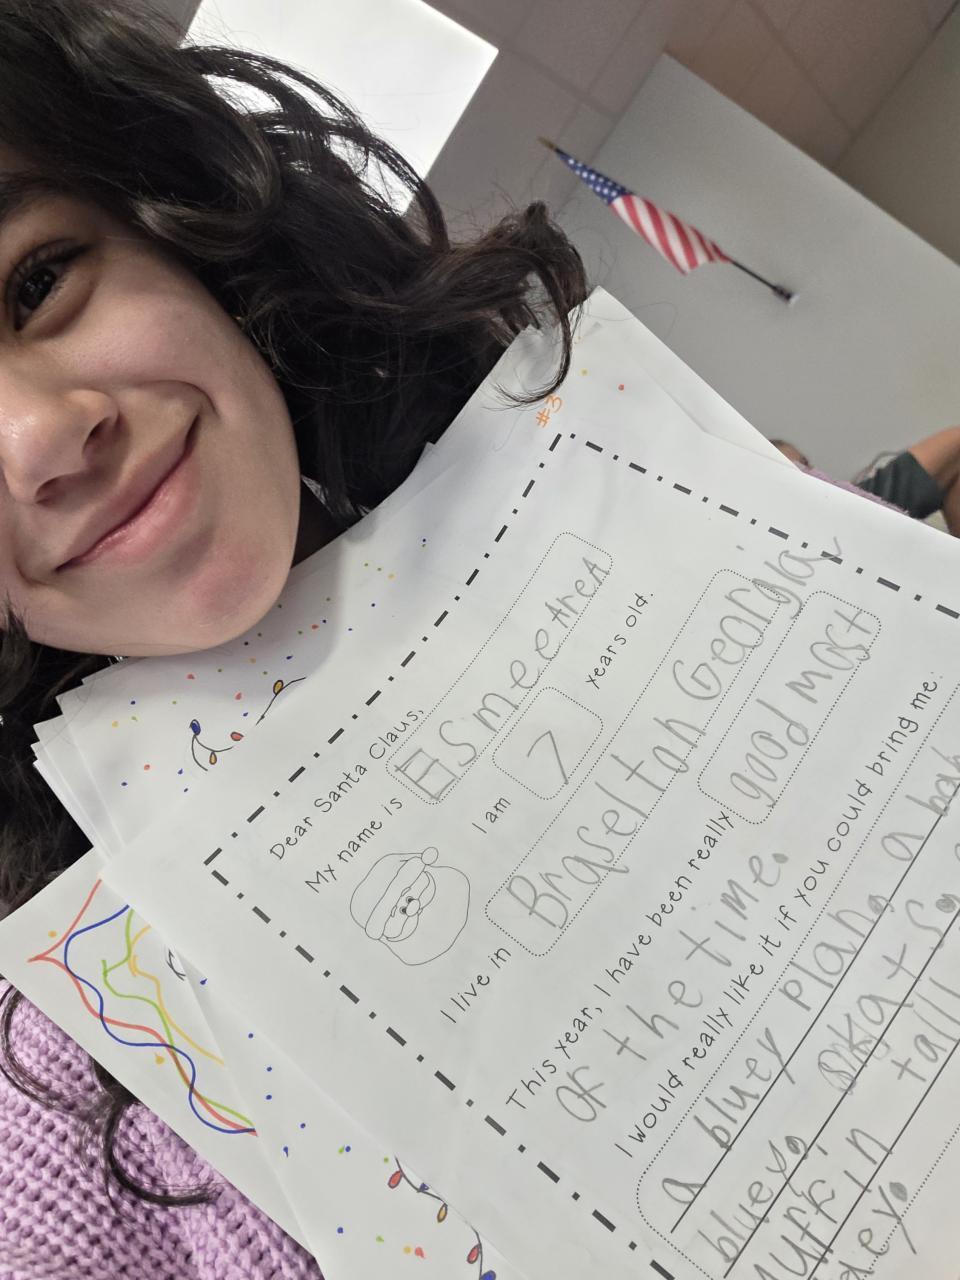 #3
Dear Santa Claus,
My name is Esmee Area
I am 7 years old.
I live in Braseltoh Georgia
This year, I have been really good most
of the time.
I would really like it if you could bring me:
a bluey plan, a bab
bluey,
muffin tall